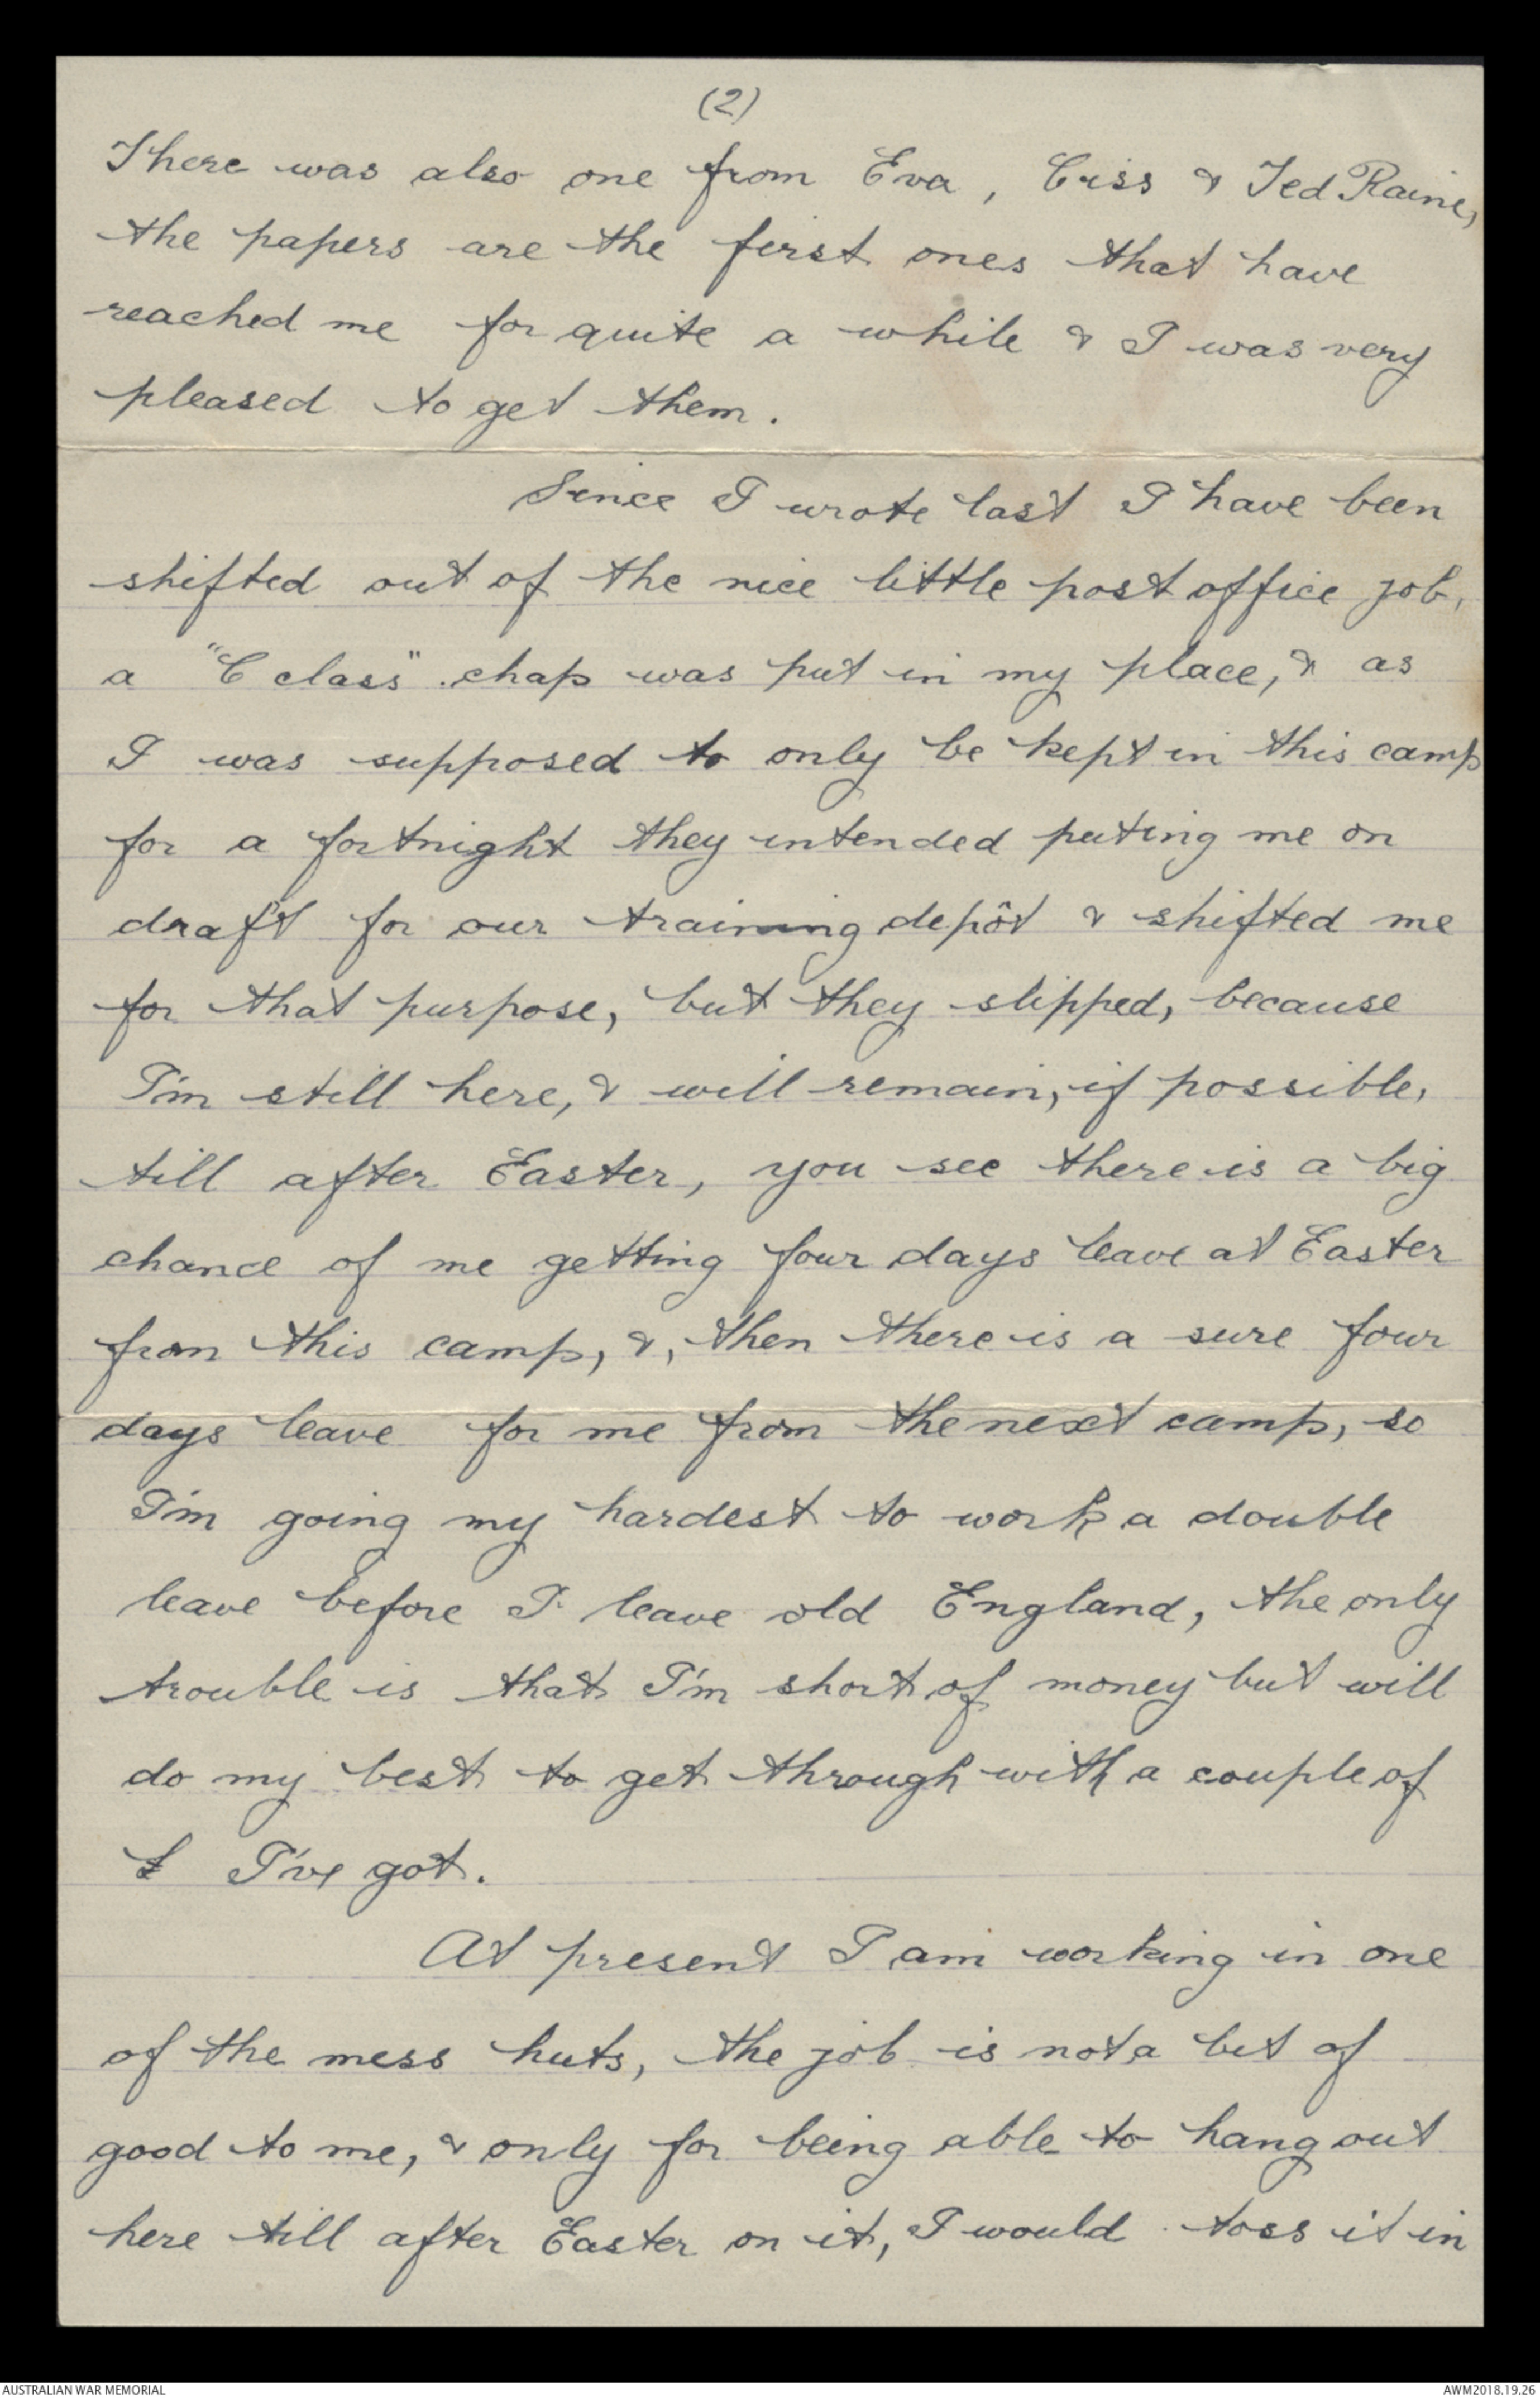 (2)
There was also one from Eva, Ciss & Ted Raine,
the papers are the first ones that have
reached me for quite a while & I was very
pleased to get them.
Since I wrote last I have been
shifted out of the nice little post office job,
a "C class" chap was put in my place, & as
I was supposed to only be kept in this camp
for a fortnight they intended puting me on
draft for our training depôt & shifted me
for that purpose, but they slipped, because
I'm still here, & will remain, if possible,
till after Easter, you see there is a big
chance of me getting four days leave at Easter
from this camp, &, then there is a sure four
days leave for me from the next camp, so
I'm going my hardest to work a double
leave before I leave old England, the only
trouble is that I'm short of money but will
do my best to get through with a couple of
£ I've got.
At present I am working in one
of the mess huts, the job is not a bit of
good to me, & only for being able to hang out
here till after Easter on it, I would toss it in
AUSTRALIAN WAR MEMORIAL
AWM2018.19.26